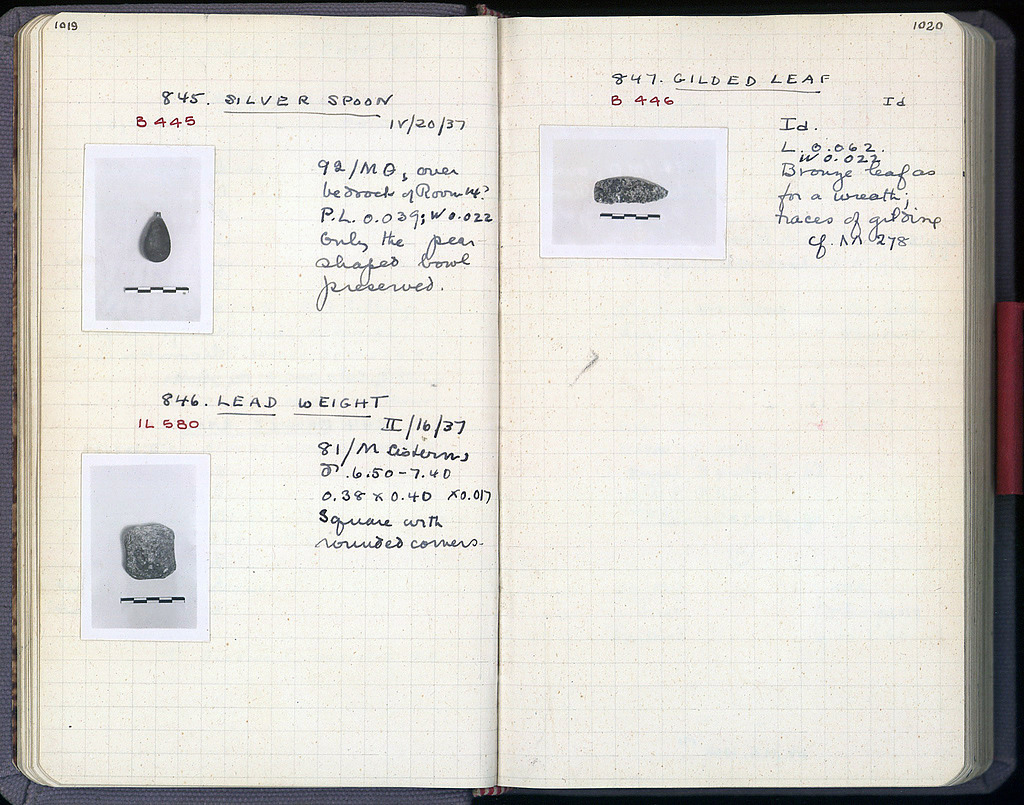 1019
845. SILVER SPOON
B 445
IV/20/37
92/MΘ, over
bedrock of Room 14?
P.L. 0.039; W 0.022
Only the pear
shaped bowl
preserved.
846. LEAD WEIGHT
IL 580
II/16/37
81/M Cistern,
.6.50-7.40
0.38 x 0.40 x0.017
Square with
rounded corners.
1020
847. GILDED LEAF
B 446
Id
Id.
L. 0.062.
W 0.022
Bronze leaf as
for a wreath;
traces of gilding
cf. M 278